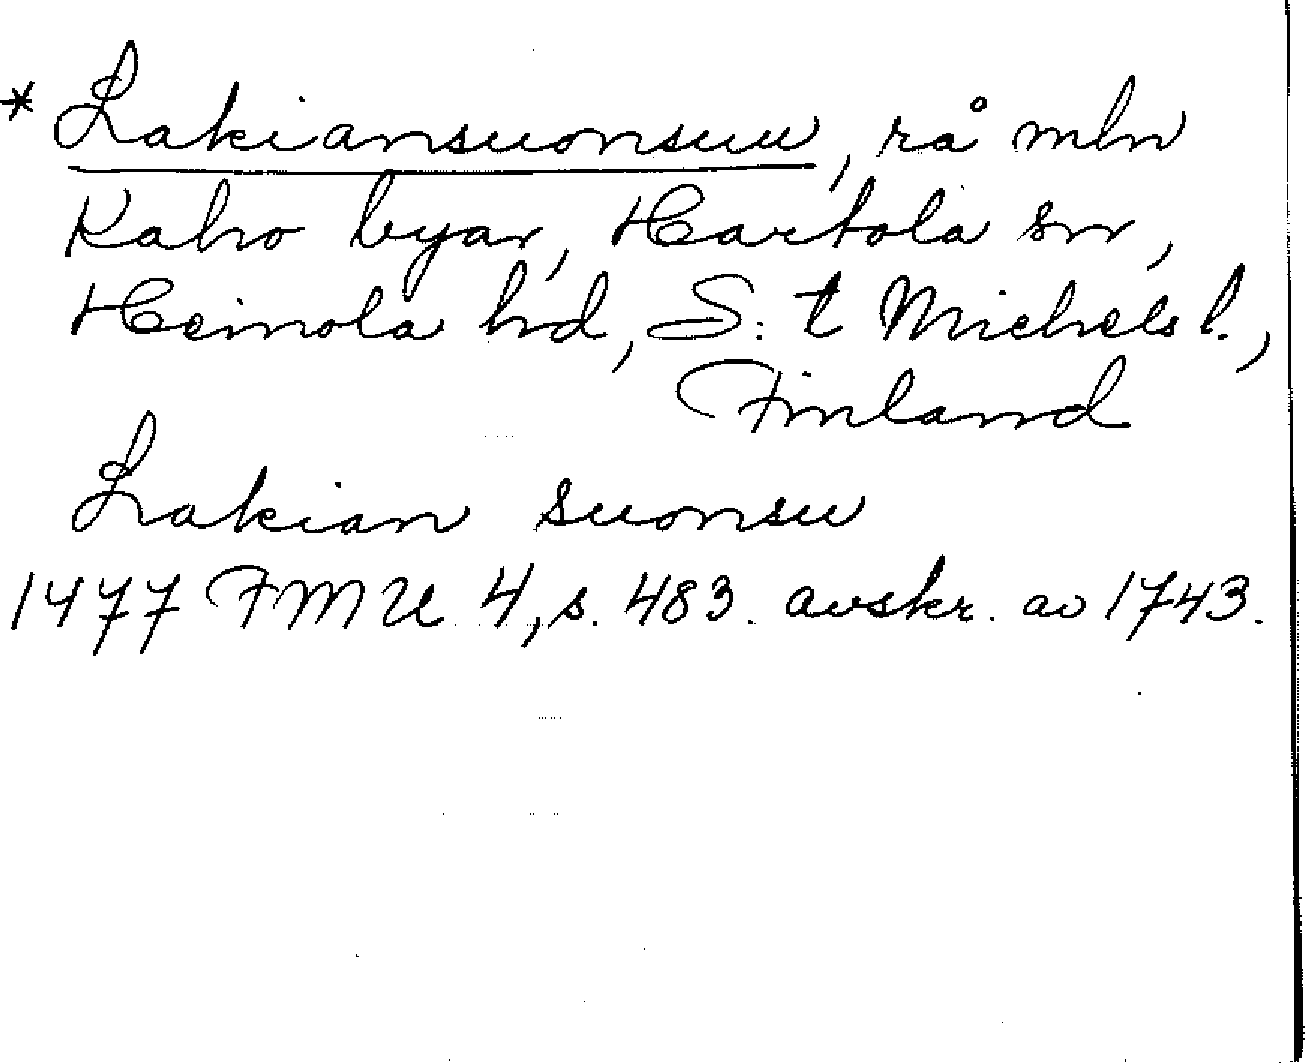 * Lakiansuonsuu, rå mln
Kaho byar, Hartola sn,
Heinola hd, S:t Michels l.,
Finland
Lakian suonsu
1477 FMU 4, s. 483. avskr. av 1743.